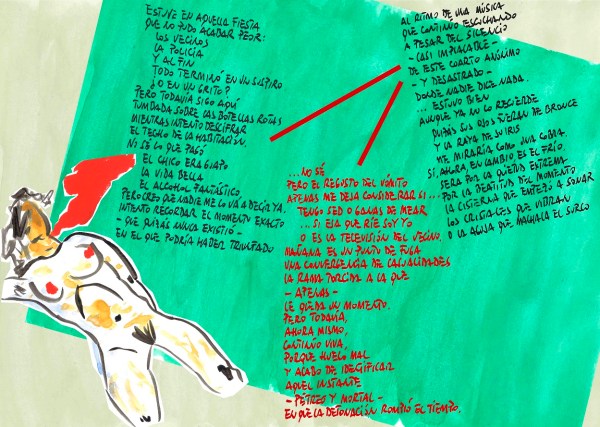 ESTUVE EN AQUELLA FIESTA
QUE NO PUDO ACABAR PEOR:
LOS VECINOS
LA POLICÍA
Y AL FIN
TODO TERMINÓ EN UN SUSPIRO
¿O EN UN GRITO?
PERO TODAVÍA SIGO AQUÍ
TUMBADA SOBRE LAS BOTELLAS ROTAS
MIENTRAS INTENTO DESCIFRAR
EL TECHO DE LA HABITACIÓN.
NO SÉ LO QUE PASÓ
EL CHICO ERA GUAPO
LA VIDA BELLA
EL ALCOHOL FANTÁSTICO
PERO CREO QUE NADIE ME LO VA A DECIR YA.
INTENTO RECORDAR EL MOMENTO EXACTO
- QUE QUIZÁS NUNCA EXISTIÓ -
EN EL QUE PODRÍA HABER TRIUNFADO
AL RITMO DE UNA MÚSICA
QUE CONTINÚO ESCUCHANDO
A PESAR DEL SILENCIO
- CASI IMPLACABLE -
DE ESTE CUARTO ANÓNIMO
- Y DESASTRADO -
DONDE NADIE DICE NADA.
... ESTUVO BIEN
AUNQUE YA NO LO RECUERDE
QUIZÁS SUS OJOS FUERAN DE BRONCE
Y LA RAYA DE SU IRIS
ME MIRARÍA COMO UNA COBRA.
SI, AHORA EN CAMBIO ES EL FRÍO.
SERÁ POR LA QUIETUD EXTREMA
POR LA BEATITUD DEL MOMENTO
LA CISTERNA QUE EMPIEZA A SONAR
LOS CRISTALES QUE VIBRAN
O LA AGUJA QUE MACHACA EL SURCO
...NO SÉ
PERO EL REGUSTO DEL VÓMITO
APENAS ME DEJA CONSIDERAR SI...
TENGO SED O GANAS DE MEAR
... SI ESA QUE RÍE SOY YO
O ES LA TELEVISIÓN DEL VECINO.
MAÑANA ES UN PUNTO DE FUGA
UNA CONVERGENCIA DE CASUALIDADES
LA RAMA TORCIDA A LA QUE
- APENAS -
LE QUEDA UN MOMENTO.
PERO TODAVÍA,
AHORA MISMO,
CONTINÚO VIVA,
PORQUE HUELO MAL
Y ACABO DE IDENTIFICAR
AQUEL INSTANTE
- PÉTREO Y MORTAL -
EN QUE LA DETONACIÓN ROMPIÓ EL TIEMPO.